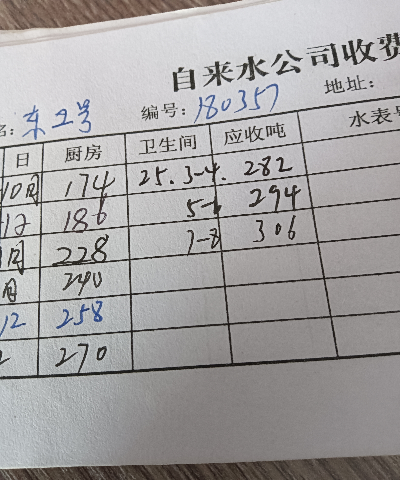 自来水公司收费
名: 东2号 编号: 180357 地址:
日 厨房 卫生间 应收吨 水表号
10月 174 25.3-4. 282
12 186 5-6 294
月 228 7-8 306
月 240
12 258
2 270